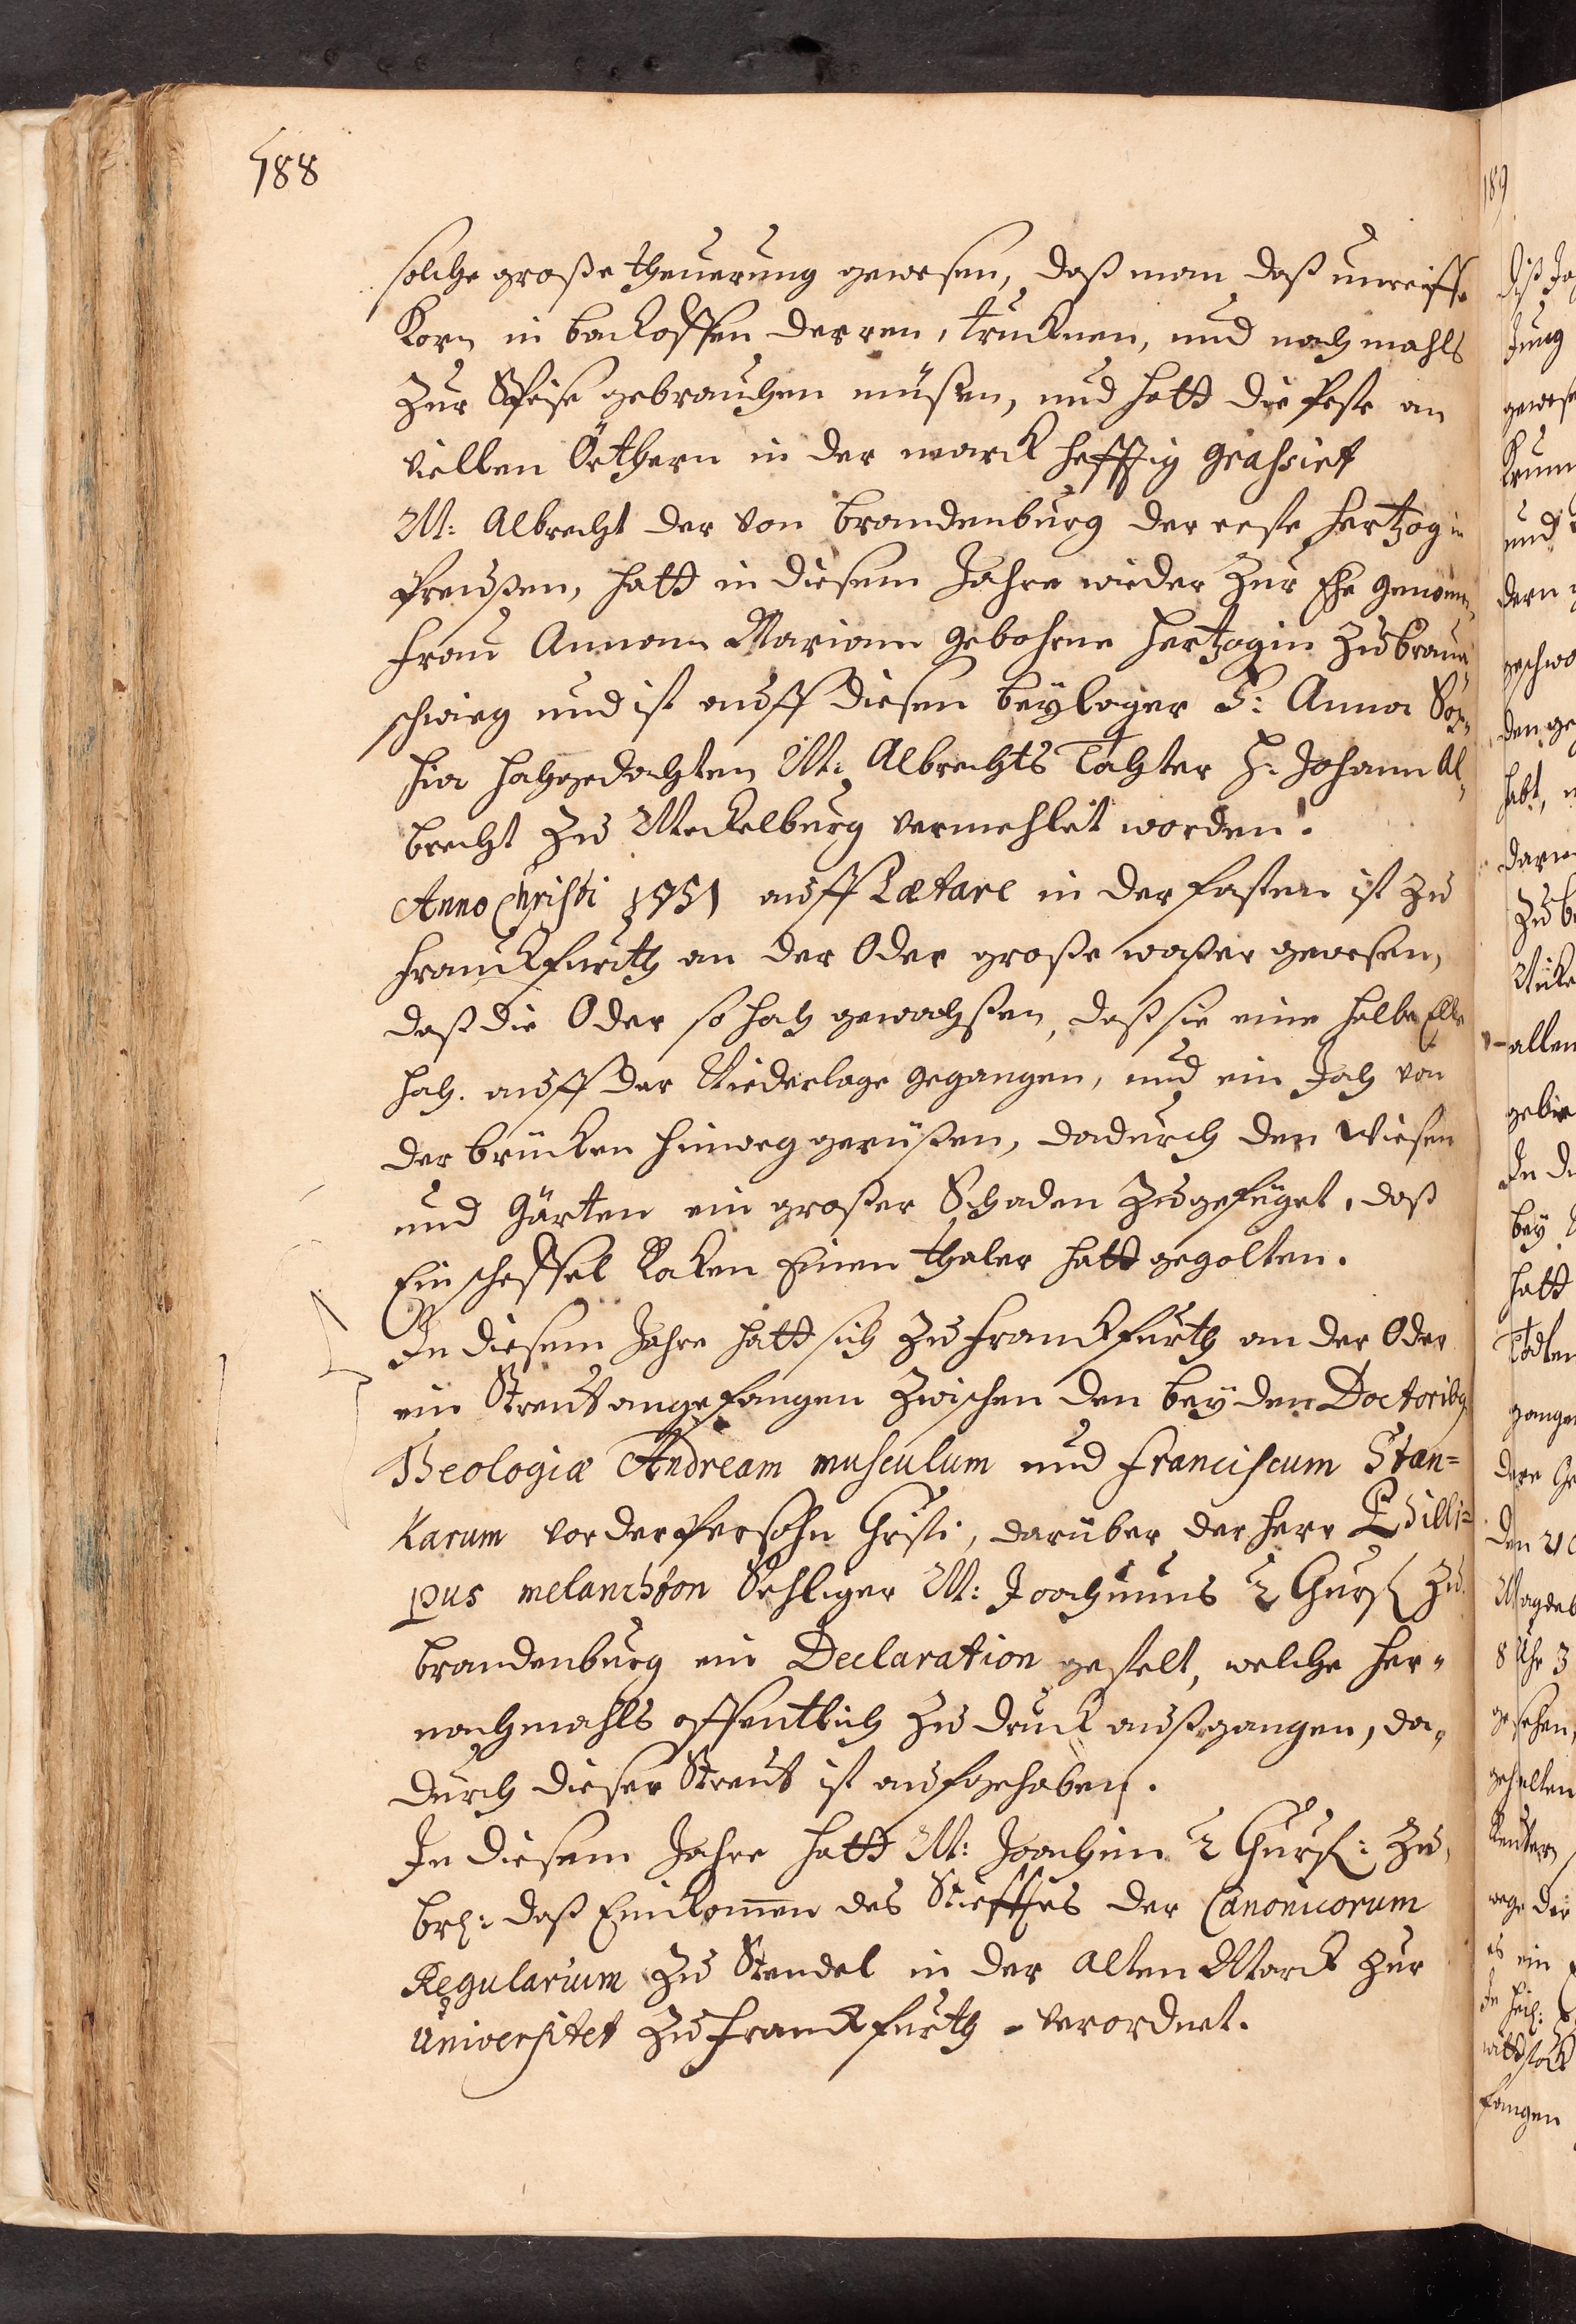 188
solche große theuerung gewesen, daß man daß unreiffe
Korn in backoffen derren, trucknen, und nach mahls
Zur Speise gebrauchen müßen, und hatt die Peste an
viellen Örthern in der marck hefftig grahsiet
M: Albrecht der von brandenburg der erste Hertzog in
Preußen, hatt in diesem Jahre wieder Zur Ehe genomen
Frau Annam Mariam gebohrne Hertzogin Zu braun„
schwieg und ist auff diesen beÿlager F: Anna Sop„
hia hochgedachten M: Albrechts Tochter H: Johann Al„
brecht Zu Meckelburg vermehlet worden.
Anno Christi 1551 auff Lætare in der fasten ist Zu
Franckfurth an der Oder große waßer gewesen,
daß die Oder so hoch gewachßen, daß sie eine halbe Elle
hoch auff der Niederlage gegangen, und ein Joch von
der brücken hinweg gerüßen, dadurch den Wiesen
und Gärten ein großer Schaden Zugefüget, daß
Ein scheffel Rocken Einen thaler hatt gegolten.
In diesem Jahre hatt sich Zu Franckfurth an der Oder
ein Streut angefangen Zwischen den beÿden Doctoribg
Theologiæ Andream musculum und Franciscum Stan=
Karum vor der Persohn Christi, darüber der Herr Phillip=
pus melanchton Sehliger M: Joachimus 2 Churf Zu
brandenburg ein Declaration gestelt, welche her„
nachmahls offentlich Zu druck außgangen, da„
durch dieser Streut ist aufgehoben.
In diesem Jahre hatt M: Joachim 2 Churf: Zu
br: daß Einkom̄en des Stiefftes der Canonicorum
Regularium Zu Stendel in der Alten Marck Zur
Universitet Zu Franckfurth verordnet.
189
Jung
und
dern
habt,
Zu
allen
In
beÿ
hatt
8 Uhr 3
gehalten
es ein
fangen